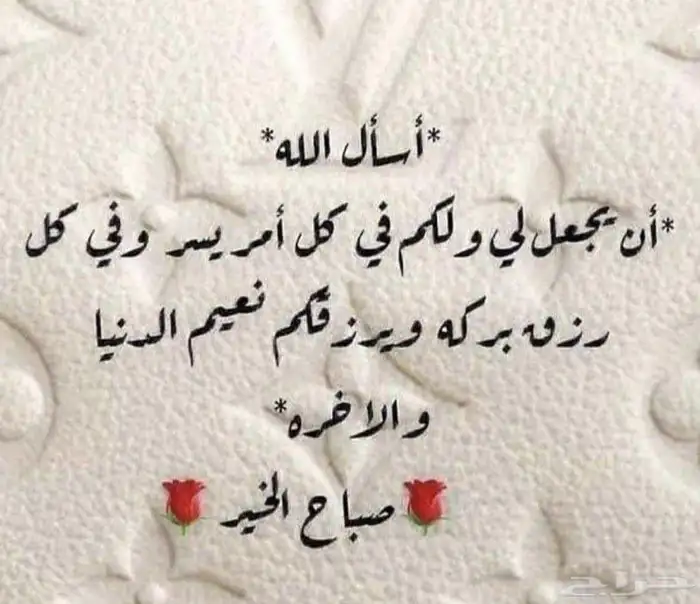 *أسأل الله*
*أن يجعل لي ولكم في كل أمر يسر وفي كل
رزق بركه ويرزقكم نعيم الدنيا
والاخره*
🌹صباح الخير🌹
حراج